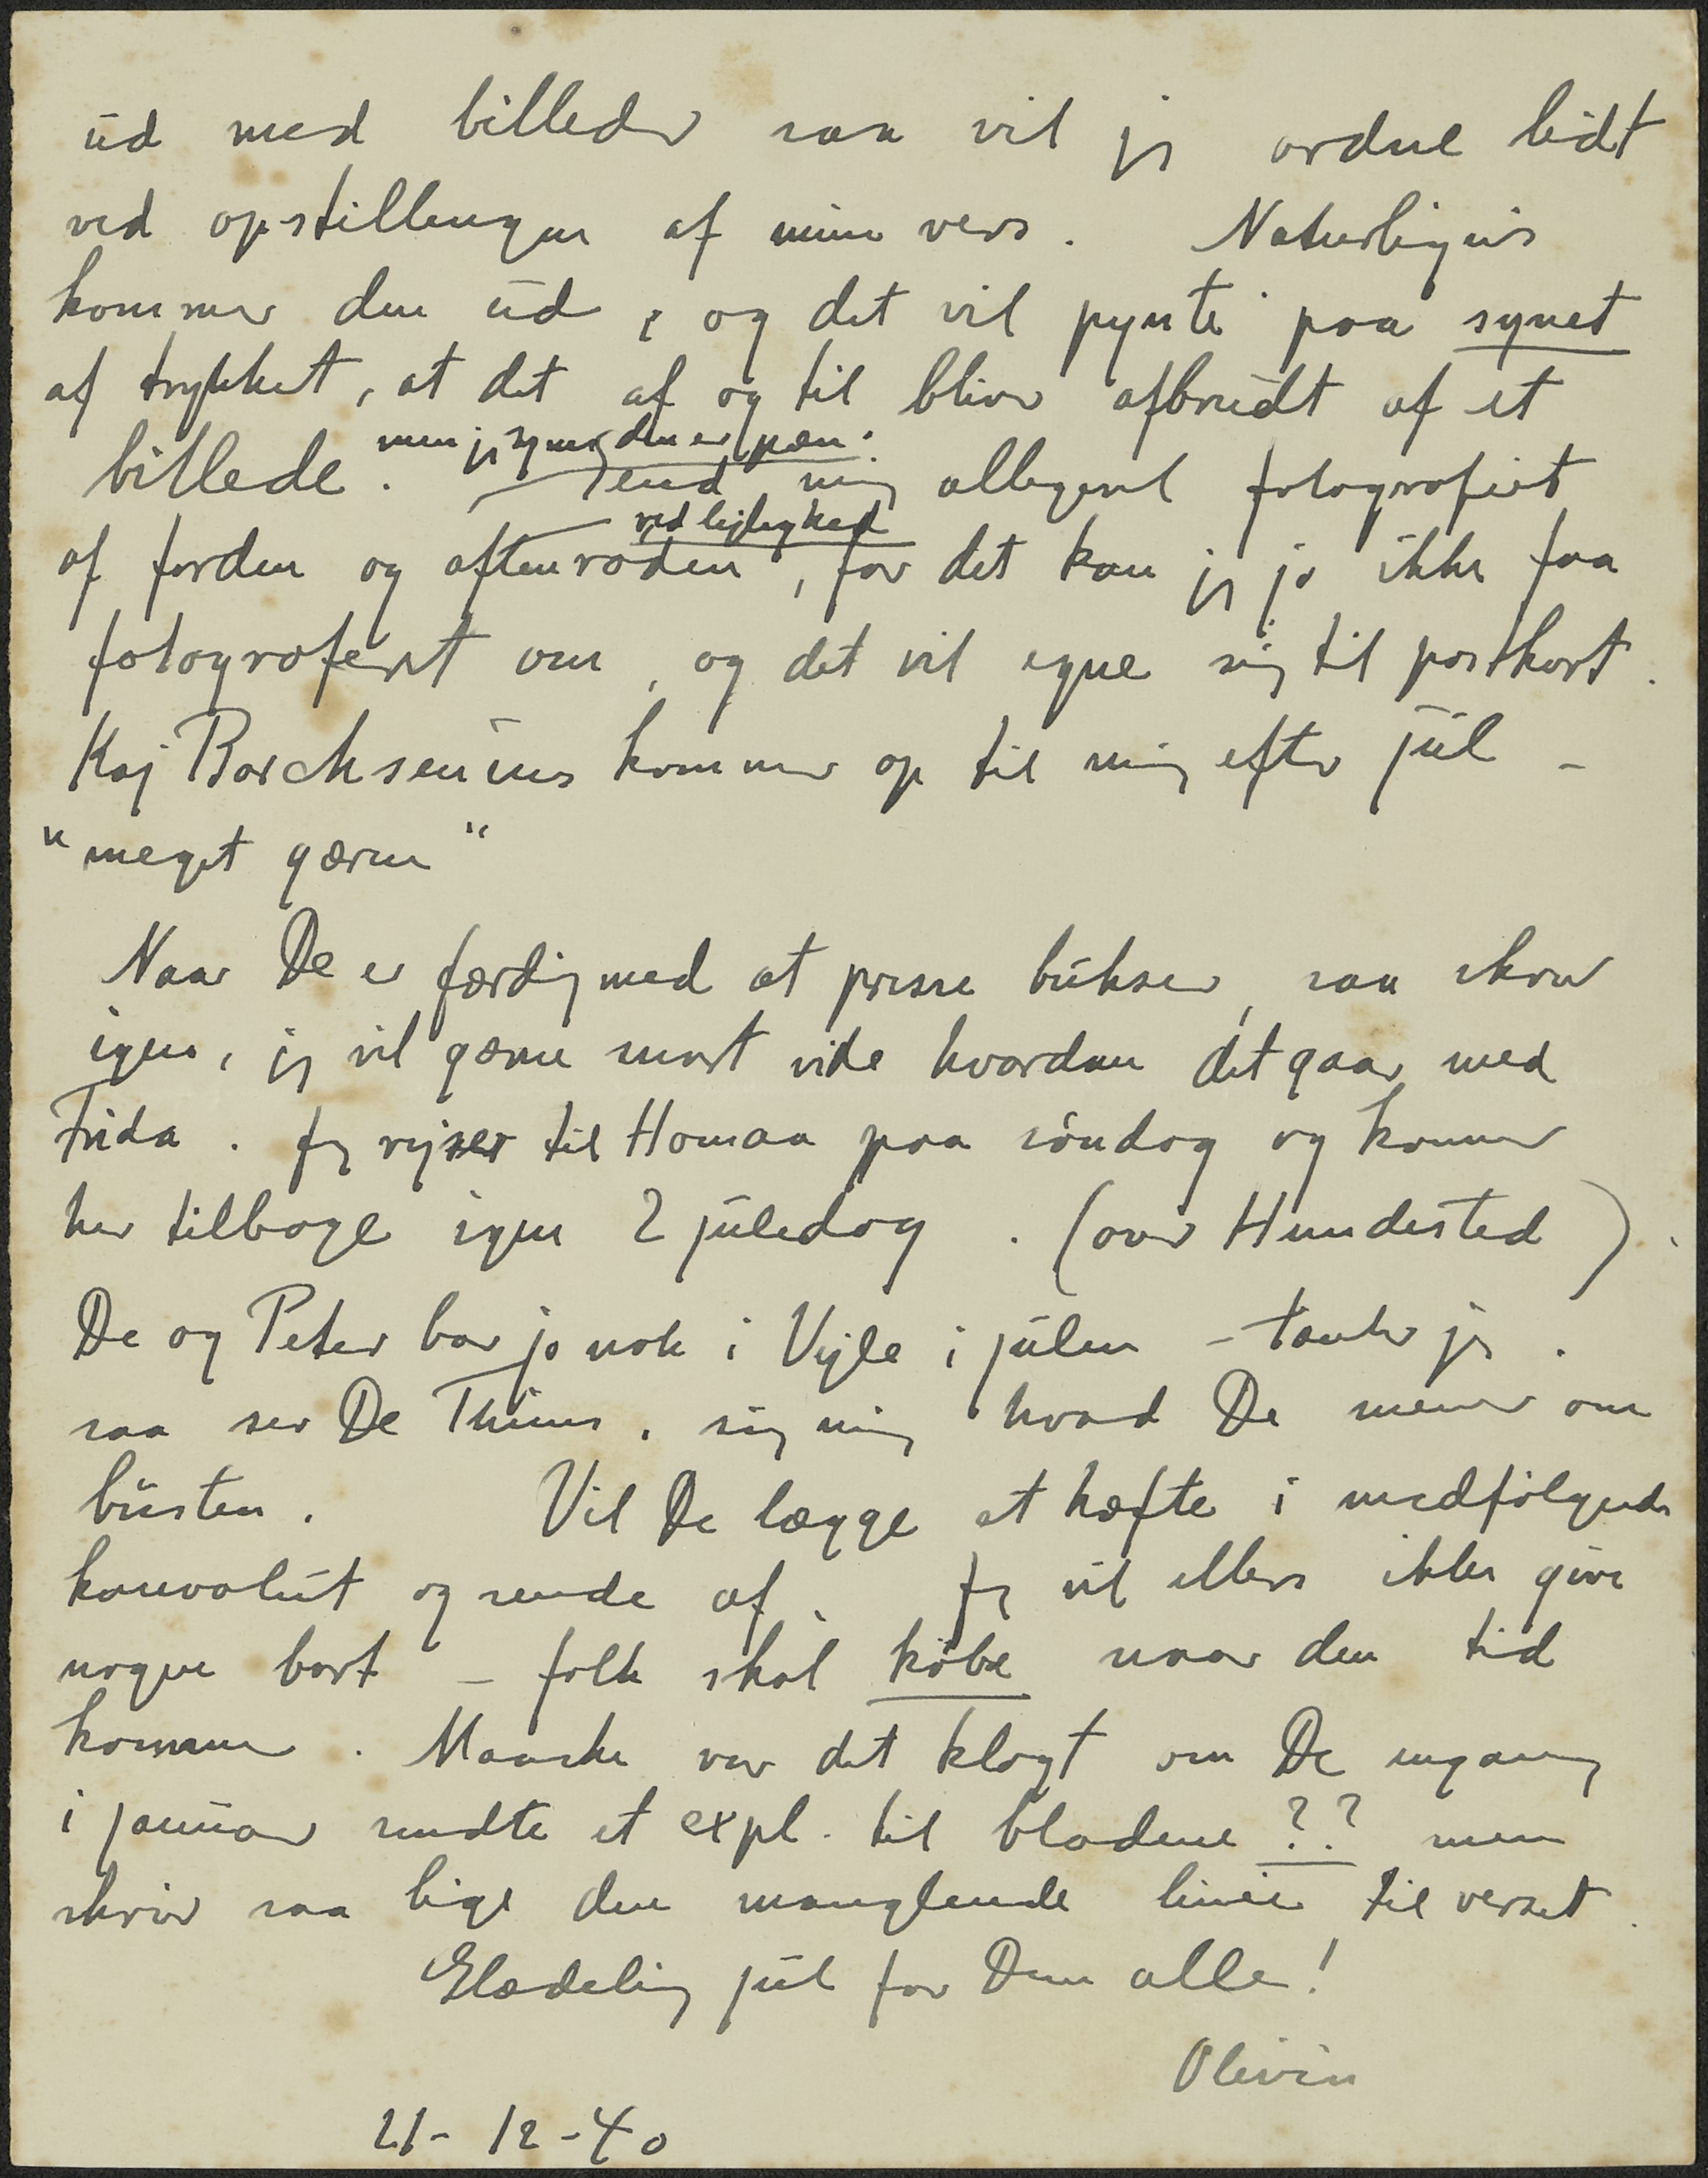 ud med billeder saa vil jeg ordne lidt
ved opstillingen af mine vers. Naturligvis
kommer den ud, og det vil pynte paa synet
af trykket, at det af og til bliver afbrudt af et
billede. men jeg synes den er pæn.
Send mig alligevel fotografiet
ved lejlighed
af fjorden og aftenrøden, for det kan jeg jo ikke faa
fotograferet om, og det vil egne sig til postkort.
Kaj Borchsenius kommer op til mig efter jul –
"meget gærne"
Naar De er færdig med at presse bukser, saa skriv
igen, jeg vil gærne snart vide hvordan det gaar med
Frida. Jeg rejser til Homaa paa søndag og kommer
her tilbage igen 2 juledag. (over Hundested).
De og Peter bør jo nok i Vejle i julen – tænker jeg.
saa ser De Thims, sig mig hvad De mener om
busten. Vil De lægge et hæfte i medfølgende
konvolut og sende af. Jeg vil ellers ikke give
nogen bort – folk skal købe naar den tid
kommer. Maaske var det klogt om De engang
i januar sendte et expl. til bladene ?? men
skriv saa lige den manglende linie til verset.
Glædelig jul for Dem alle!
Olivia
21-12-40